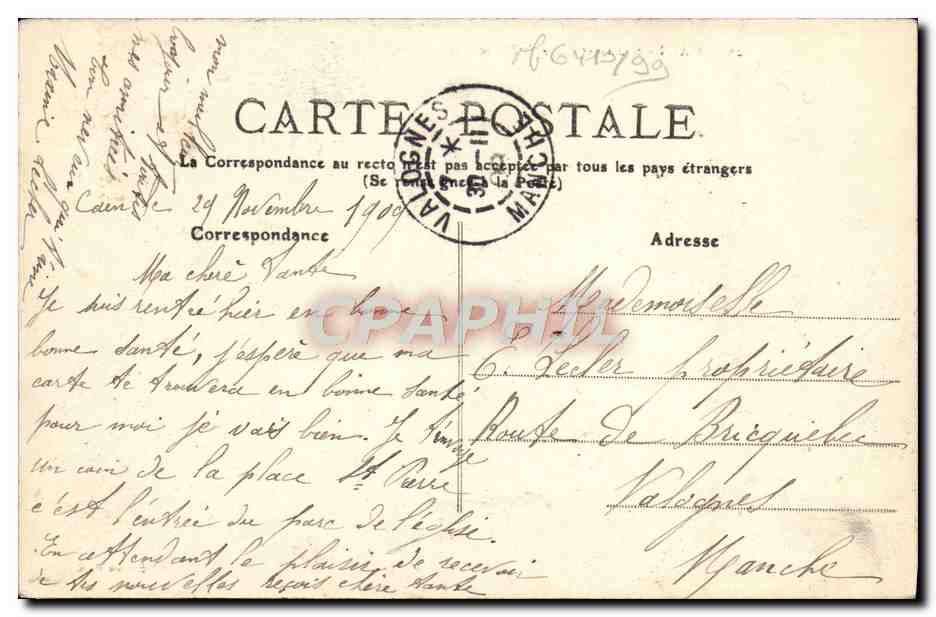 CARTE POSTALE
La Correspondance au recto n'est pas acceptée par tous les pays étrangers
(Se renseigner à la Poste)
VALOGNES
MANCHE
30 - 11
09
Caen le 29 Novembre 1909
Correspondance
Ma chère tante
Je suis rentré hier en bonne
bonne santé, j'espère que ma
carte te trouvera en bonne santé
pour moi je vais bien. Je t'envoye
un coin de la place St Pierre
c'est l'entrée du parc de l'église.
En attendant le plaisir de recevoir
de tes nouvelles reçois chère tante
mes amitiés
Ton neveu qui t'aime
Adresse
Mademoiselle
E. Lecler propriétaire
Route de Bricquebec
Valognes
Manche
CPAPHIL